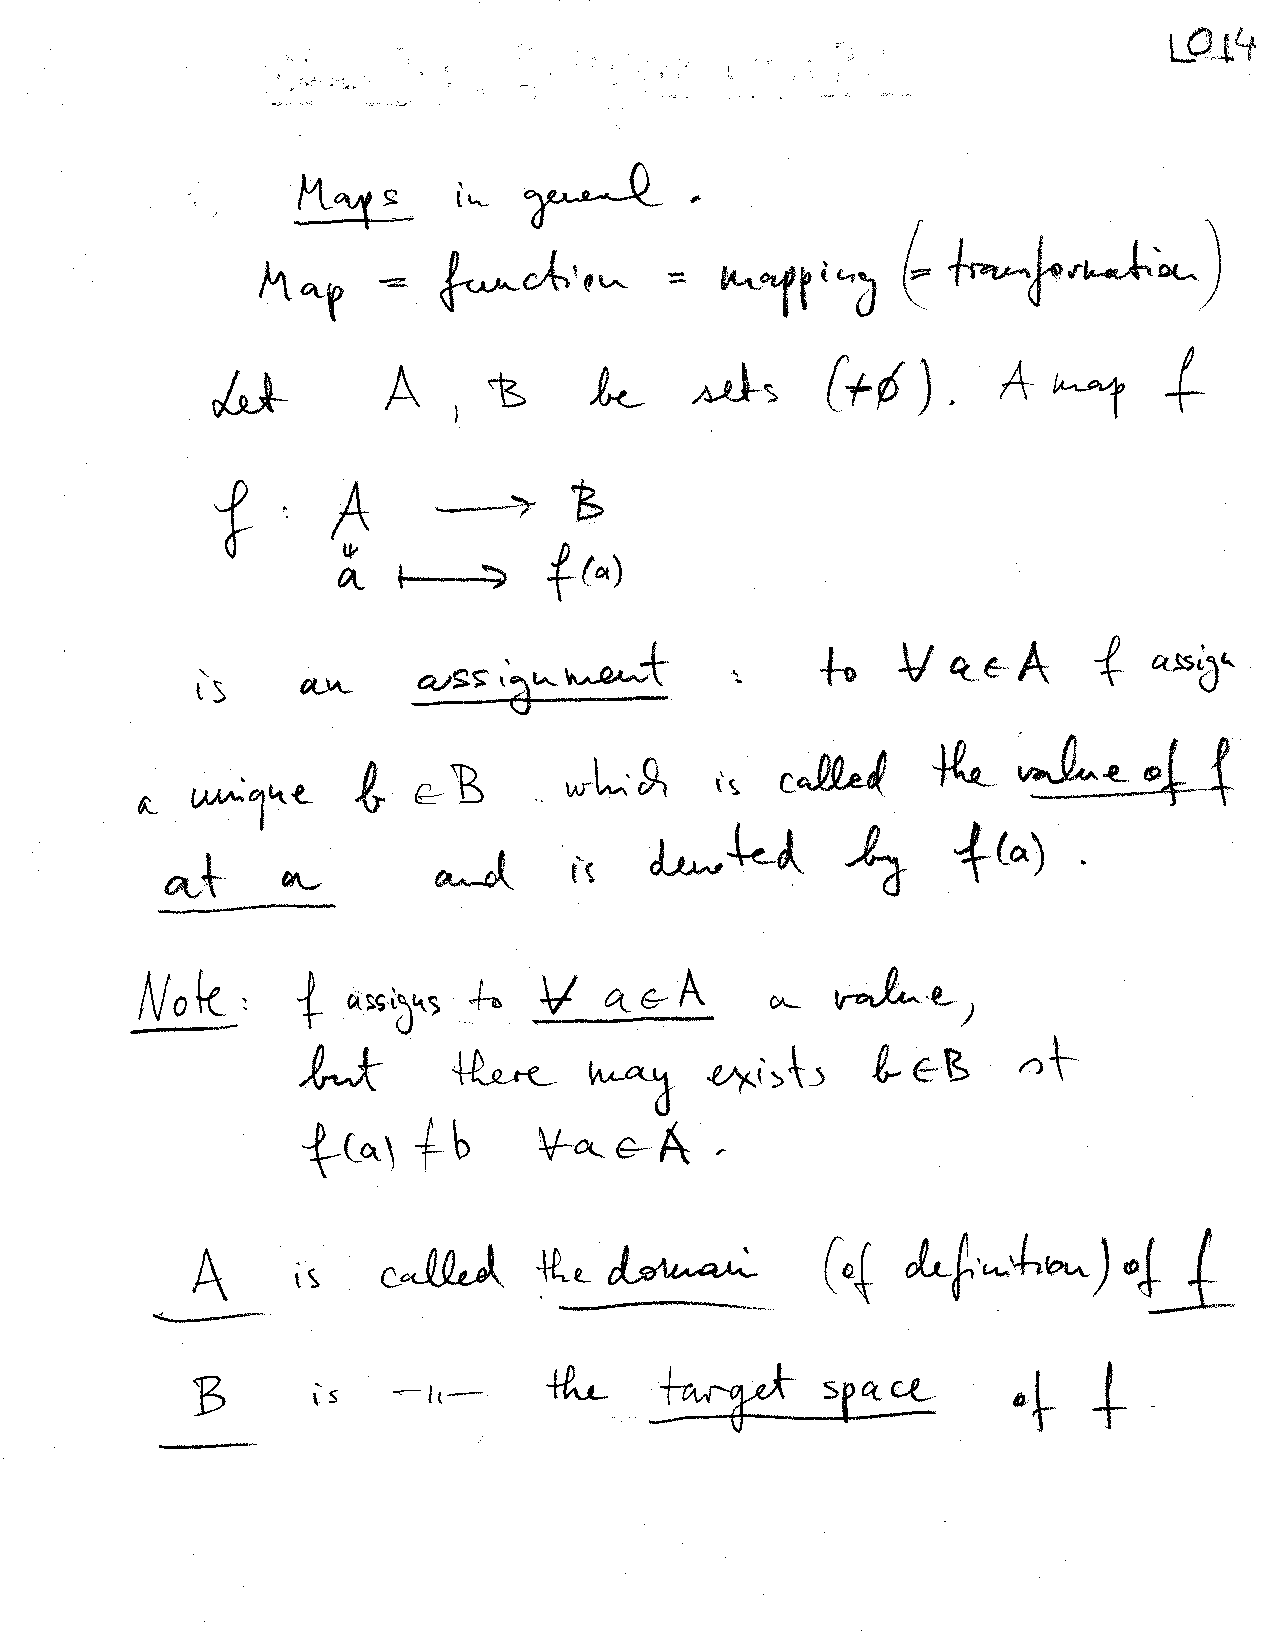 LO14
Maps in general.
Map = function = mapping (= transformation)
Let A, B be sets (≠∅). A map f
f : A ⟶ B
∪
a ⟼ f(a)
is an assignment : to ∀ a ∈ A f assign
a unique b ∈ B which is called the value of f
at a and is denoted by f(a).
Note: f assigns to ∀ a ∈ A a value,
but there may exists b ∈ B st
f(a) ≠ b ∀ a ∈ A.
A is called the domain (of definition) of f
B is —〃— the target space of f.